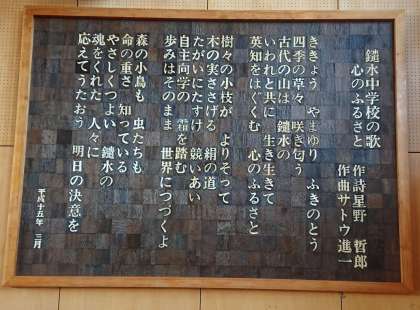 鑓水中学校の歌
心のふるさと
作詩 星野 哲郎
作曲 サトウ進一
ききょう やまゆり ふきのとう
四季の草々 咲き匂う
古代の山は 鑓水の
いわれと共に 生き生きて
英知をはぐくむ 心のふるさと
樹々の小枝が よりそって
木の実ささげる 絹の道
たがいにたすけ 競いあい
自主向学の 霜を踏む
歩みはそのまま 世界につづくよ
森の小鳥も 虫たちも
命の重さ 知っている
やさしくつよい 鑓水の
魂をくれた 人々に
応えてうたおう 明日の決意を
平成十五年 三月